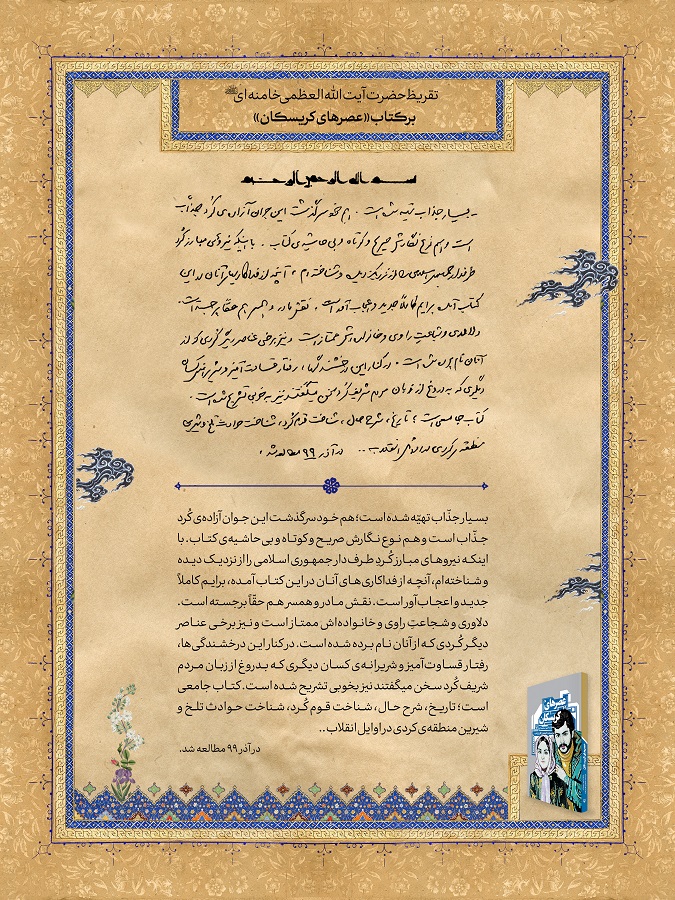 تقریظ حضرت آیت الله العظمی خامنه‌ای
بر کتاب «عصرهای کریسکان»
بسم الله الرحمن الرحیم
- بسیار جذاب تهیه شده است . هم خود سرگذشت این جوان آزاده‌ی کُرد جذّاب
است و هم نوع نگارش صریح و کوتاه و بی حاشیه‌ی کتاب . با اینکه نیروهای مبارز کُرد
طرفدار جمهوری اسلامی را از نزدیک دیده و شناخته‌ام ، آنچه از فداکاریهای آنان در این
کتاب آمده، برایم کاملاً جدید و اعجاب آور است . نقش مادر و همسر هم حقّاً برجسته است.
دلاوری و شجاعت راوی و خانواده‌اش ممتاز است و نیز برخی عناصر دیگر کُردی که از
آنان نام برده شده است . در کنار این درخشندگیها، رفتار قساوت آمیز و شریرانه‌ی کسان
دیگری که بدروغ از زبان مردم شریف کُرد سخن میگفتند نیز بخوبی تشریح شده است .
کتاب جامعی است ؛ تاریخ، شرح حال ، شناخت قوم کُرد، شناخت حوادث تلخ و شیرین
منطقه‌ی کردی در اوایل انقلاب .. در آذر ۹۹ مطالعه شد .
بسیار جذّاب تهیّه شده است؛ هم خود سرگذشت این جوان آزاده‌ی کُرد
جذّاب است و هم نوع نگارش صریح و کوتاه و بی حاشیه‌ی کتاب. با
اینکه نیروهای مبارز کُردِ طرف‌دار جمهوری اسلامی را از نزدیک دیده
و شناخته‌ام، آنچه از فداکاری‌های آنان در این کتاب آمده، برایم کاملاً
جدید و اعجاب‌آور است. نقش مادر و همسر هم حقّاً برجسته است.
دلاوری و شجاعتِ راوی و خانواده‌اش ممتاز است و نیز برخی عناصر
دیگر کُردی که از آنان نام برده شده است. در کنار این درخشندگی‌ها،
رفتار قساوت‌آمیز و شریرانه‌ی کسان دیگری که بدروغ از زبان مردم
شریف کُرد سخن میگفتند نیز بخوبی تشریح شده است. کتاب جامعی
است؛ تاریخ، شرح حال، شناخت قوم کُرد، شناخت حوادث تلخ و
شیرین منطقه‌ی کردی در اوایل انقلاب..
در آذر ۹۹ مطالعه شد.
عصرهای
کریسکان